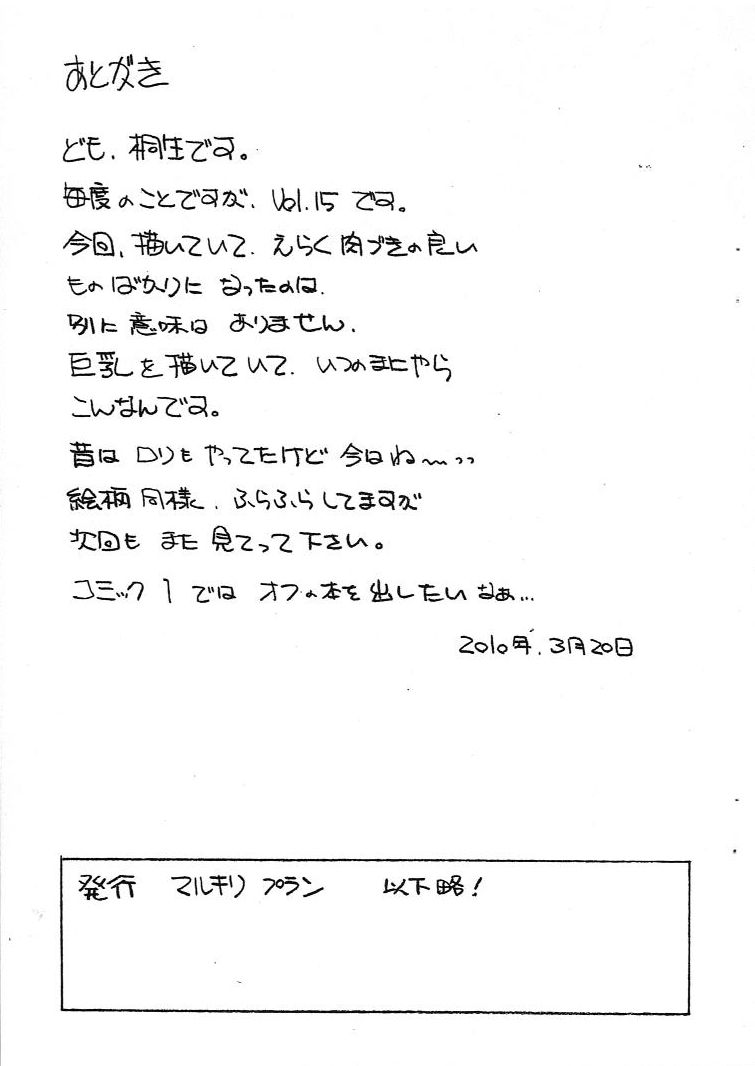 あとがき
ども、桐生です。
毎度のことですが、Vol.15 です。
今回、描いていて、えらく肉づきの良い
ものばかりに なったのは、
別に 意味は ありません、
巨乳を 描いていて、いつのまにやら
こんなんです。
昔は ロリも やってたけど 今はね〜っっ
絵柄 同様、ふらふら してますが
次回も また 見てって 下さい。
コミック1では オフの本を 出したい なぁ…
2010年、3月20日
発行 マルキリ プラン 以下略!